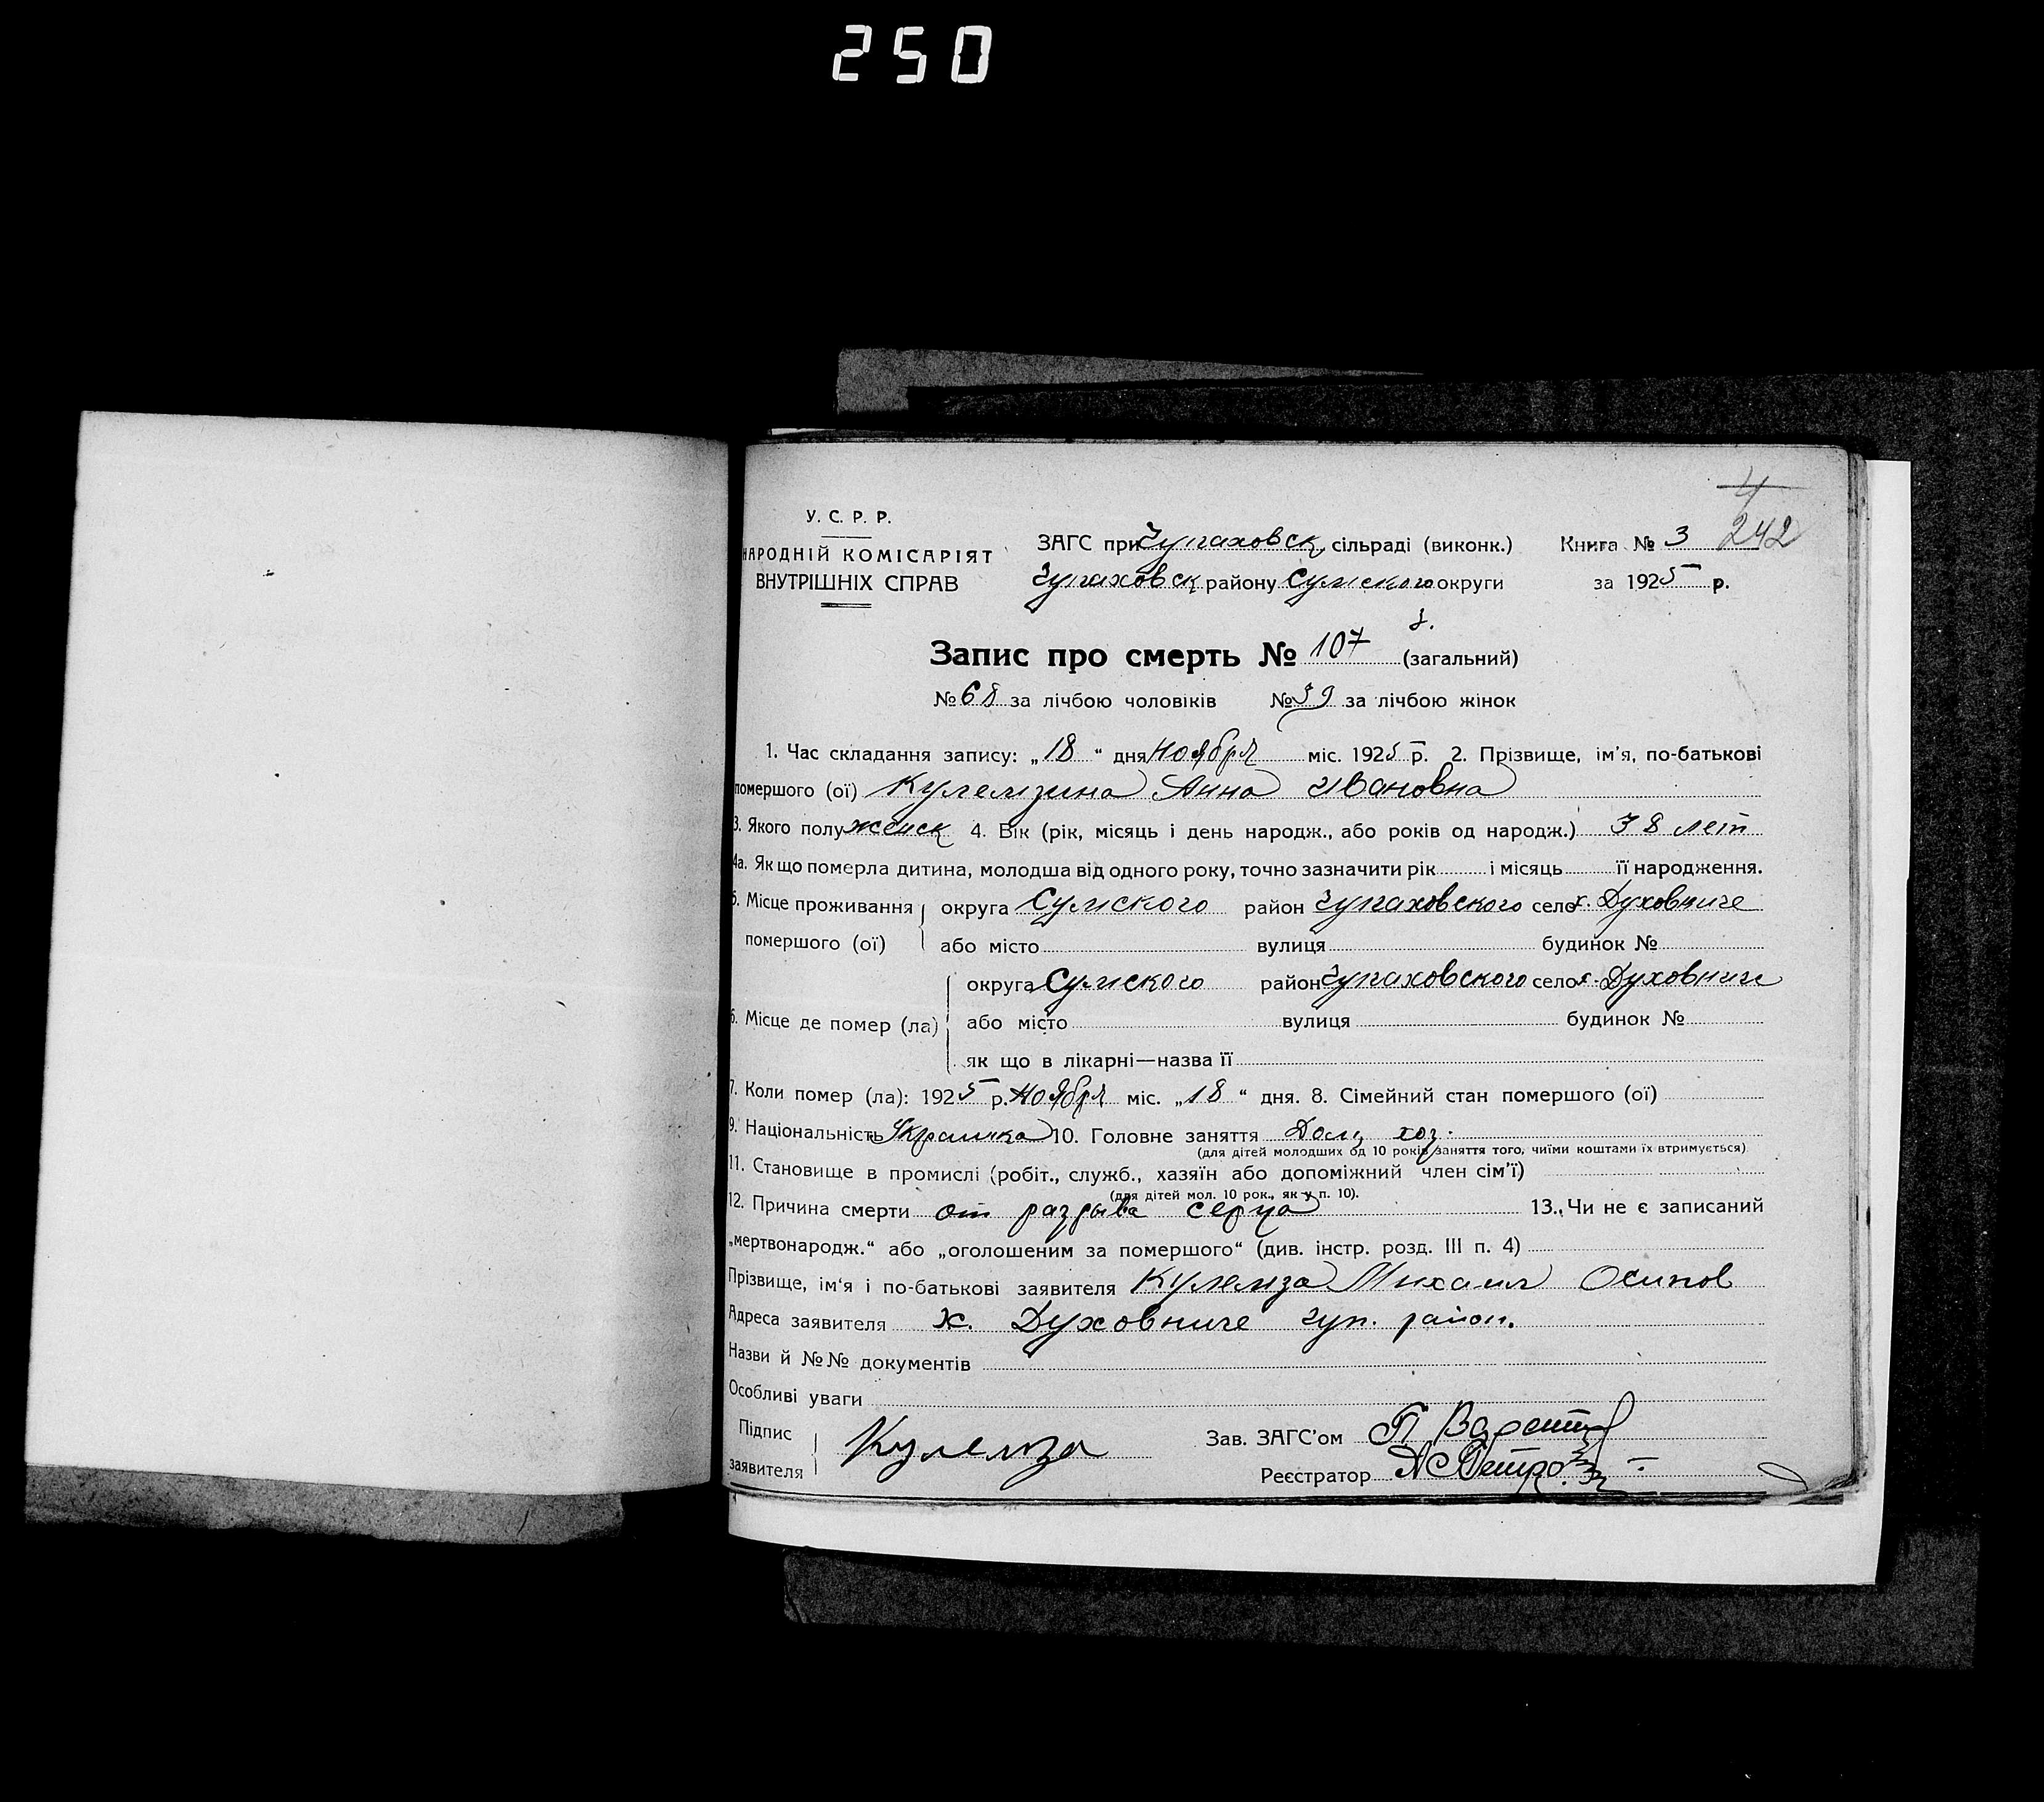 250
4
242
У. С. Р. Р.
НАРОДНІЙ КОМІСАРІЯТ
ВНУТРІШНІХ СПРАВ
ЗАГС при Чупаховск. сільраді (виконк.) Книга № 3
Чупаховск району Сумского округи за 1925 р.
Запис про смерть № 107 (загальний)
№ 68 за лічбою чоловіків № 39 за лічбою жінок
1. Час складання запису: „18“ дня Ноября міс. 1925 р. 2. Прізвище, ім’я, по-батькові
помершого (ої) Кулемзина Анна Ивановна
3. Якого полу женск 4. Вік (рік, місяць і день народж., або років од народж.) 38 лет
4а. Як що померла дитина, молодша від одного року, точно зазначити рік і місяць її народження.
5. Місце проживання округа Сумского район Чупаховского село х. Духовниче
помершого (ої) або місто вулиця будинок №
округа Сумского район Чупаховского село х. Духовниче
6. Місце де помер (ла) або місто вулиця будинок №
як що в лікарні—назва її
7. Коли помер (ла): 1925 р. Ноября міс. „18“ дня. 8. Сімейний стан помершого (ої)
9. Національність Украинка 10. Головне заняття Дом. хоз.
(для дітей молодших од 10 років заняття того, чиїми коштами їх втримується)
11. Становище в промислі (робіт., служб., хазяїн або допоміжний член сім’ї)
(для дітей мол. 10 рок., як у п. 10).
12. Причина смерти от разрыва серца 13. Чи не є записаний
„мертвонародж.“ або „оголошеним за помершого“ (див. інстр. розд. III п. 4)
Прізвище, ім’я і по-батькові заявителя Кулемза Михаил Осипов
Адреса заявителя х. Духовниче Чуп. район.
Назви й №№ документів
Особливі уваги
Підпис
заявителя Кулемза
Зав. ЗАГС’ом П
Реєстратор